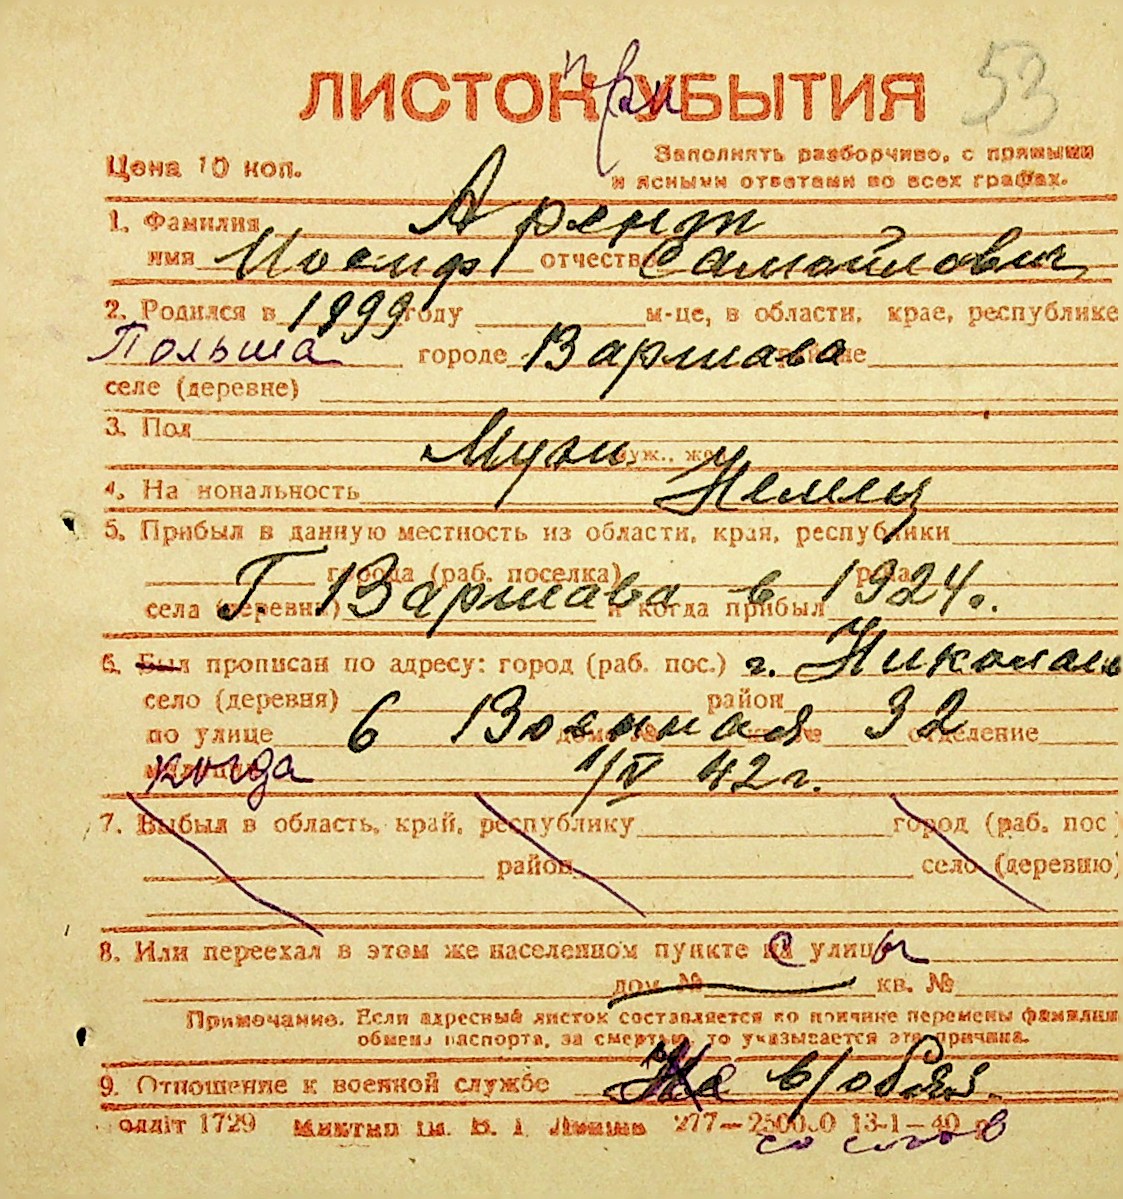 53
ЛИСТОК УБЫТИЯ
при
Цена 10 коп.
Заполнять разборчиво, с прямыми
и ясными ответами во всех графах.
1. Фамилия Арендт
имя Иосиф отчество Самойлович
2. Родился в 1899 году м-це, в области, крае, республике
Польша городе Варшава районе
селе (деревне)
3. Пол Мужч. муж., жен.
4. Национальность Немец
5. Прибыл в данную местность из области, края, республики
города (раб. поселка) р-на
села (деревни) Г Варшава в 1924. и когда прибыл
6. Был прописан по адресу: город (раб. пос.) г. Николаев
село (деревня) район
по улице 6 Военная 32 дом № кв. № отделение
когда 1/IV 42 г.
7. Выбыл в область, край, республику город (раб. пос.)
район село (деревню)
8. Или переехал в этом же населенном пункте с улицы
дом № кв. №
Примечание. Если адресный листок составляется по причине перемены фамилии
обмена паспорта, за смертью, то указывается эта причина.
9. Отношение к военной службе в/обяз.
со слов
1729 277—2500.0 13-1—40 р.